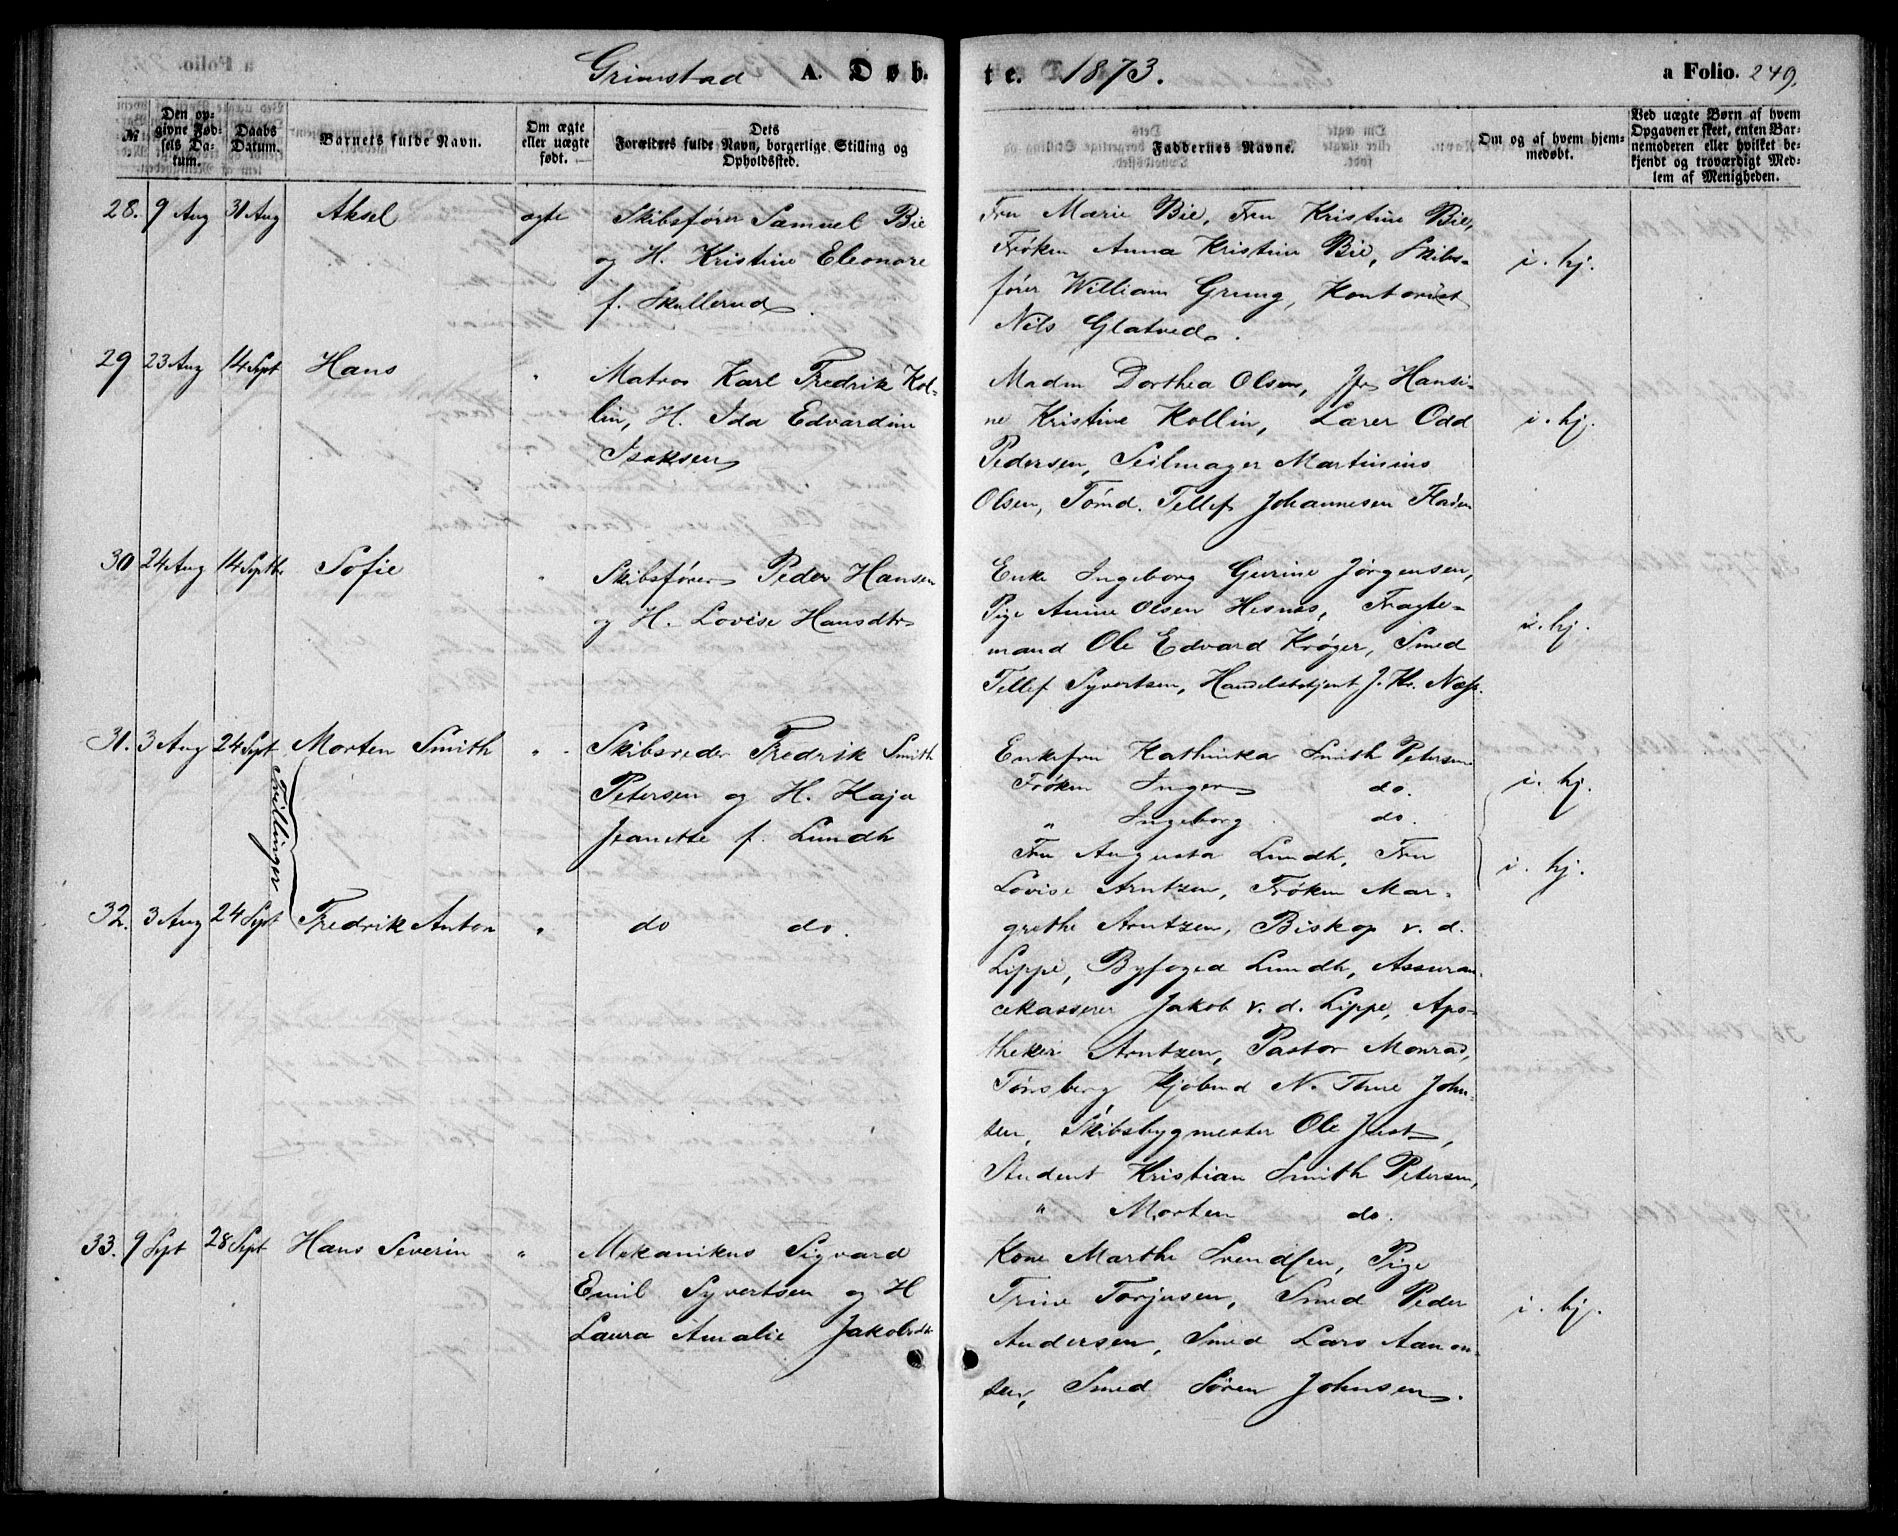 Grimstad A. Døb- te. 1873. a Folio. 249.
№
Den op-
givne Fød-
sels Da-
tum.
Daabs
Datum.
Barnets fulde Navn.
Om ægte
eller uægte
født.
Dets
Forældres fulde Navn, borgerlige Stilling og
Opholdssted.
Faddernes Navne.
Om og af hvem hjem-
medøbt.
Ved uægte Børn af hvem
Opgaven er skeet, enten Bar-
nemoderen eller hvilket be-
kjendt og troværdigt Med-
lem af Menigheden.
28. 9 Aug 31 Aug Aksel ægte
Skibsfører Samuel Bie
og H. Kristine Eleonore
f. Skullerud.
Fru Marie Bie, Fru Kristine Bie,
Frøken Anna Kristine Bie, Skibs-
fører William Grung, Kontorist
Nils Glatved.
i. hj.
29 23 Aug 14 Sept Hans "
Matros Karl Fredrik Kol-
lin, H. Ida Edvardine
Isaksen
Madm Dorthea Olsen, Jfr Hansi-
ne Kristine Kollin, Lærer Odd
Pedersen, Seilmager Martinius
Olsen, Tømd. Tellef Johannesen
i. hj.
30 24 Aug 14 Septbr Sofie "
Skibsfører Peder Hansen
og H. Lovise Hansdtr
Enke Ingeborg Gurine Jørgensen,
Pige Anine Olsen Hesnes, Fragte-
mand Ole Edvard Krøger, Smed
Tellef Syvertsen, Handelsbetjent J. Kr. Næss.
i. hj.
31. 3 Aug 24 Sept Morten Smith "
Tvillinger
Skibsreder Fredrik Smith
Petersen og H. Kaja
Jeanette f. Lundh
32. 3 Aug 24 Sept Fredrik Anton "
do do.
Enkefru Kathinka Smith Petersen
Frøken Inger do.
" Ingeborg do.
Fru Augusta Lundh, Fru
Lovise Arntzen, Frøken Mar-
grethe Arntzen, Biskop v. d.
Lippe, Byfoged Lundh, Assuran-
cekasserer Jakob v. d. Lippe, Apo-
theker Arntzen, Pastor Monrad,
Tønsberg Kjøbmd N. Thue John-
sen, Skibsbygmester Ole Just,
Student Kristian Smith Petersen,
" Morten do.
i. hj.
i. hj.
33. 9 Sept 28 Sept Hans Severin "
Mekanikus Sigvard
Emil Syvertsen og H
Laura Amalie Jakobsdtr
Kone Marthe Svendsen, Pige
Trine Torjusen, Smed Peder
Andersen, Smed Lars Aanon-
sen, Smed Søren Johnsen.
i. hj.